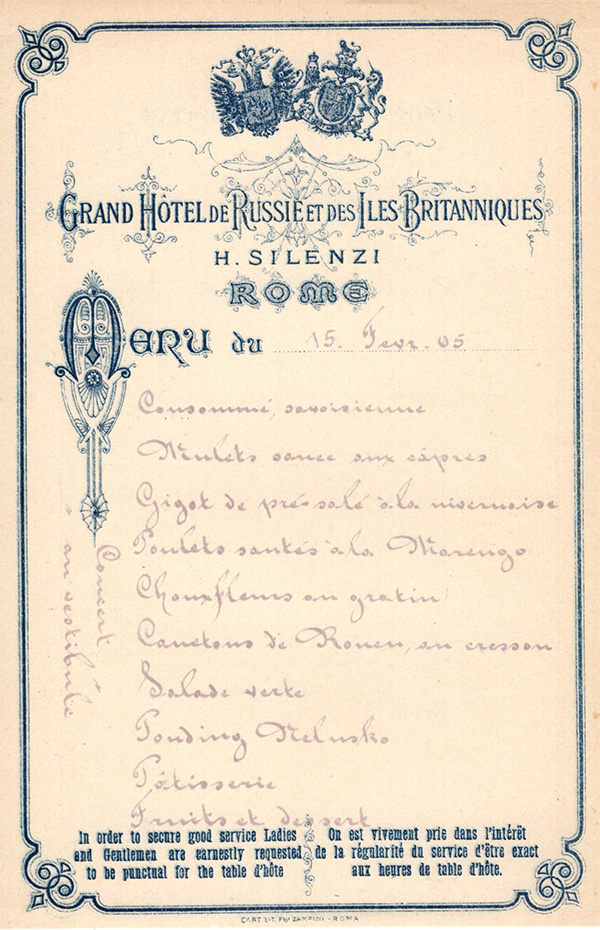 GRAND HÔTEL DE RUSSIE ET DES ILES BRITANNIQUES
H. SILENZI
ROME
MENU du 15. Fevr. 05
Consommé, savoisienne
Mulets sauce aux câpres
Gigot de pré-salé à la nivernaise
Poulets sautés à la Marengo
Chouxfleurs au gratin
Canetons de Rouen, au cresson
Salade verte
Pouding Nelusko
Pâtisserie
Fruits et dessert
Concert
au vestibule
In order to secure good service Ladies
and Gentlemen are earnestly requested
to be punctual for the table d'hôte
On est vivement prié dans l'intérêt
de la régularité du service d'être exact
aux heures de table d'hôte.
ROMA